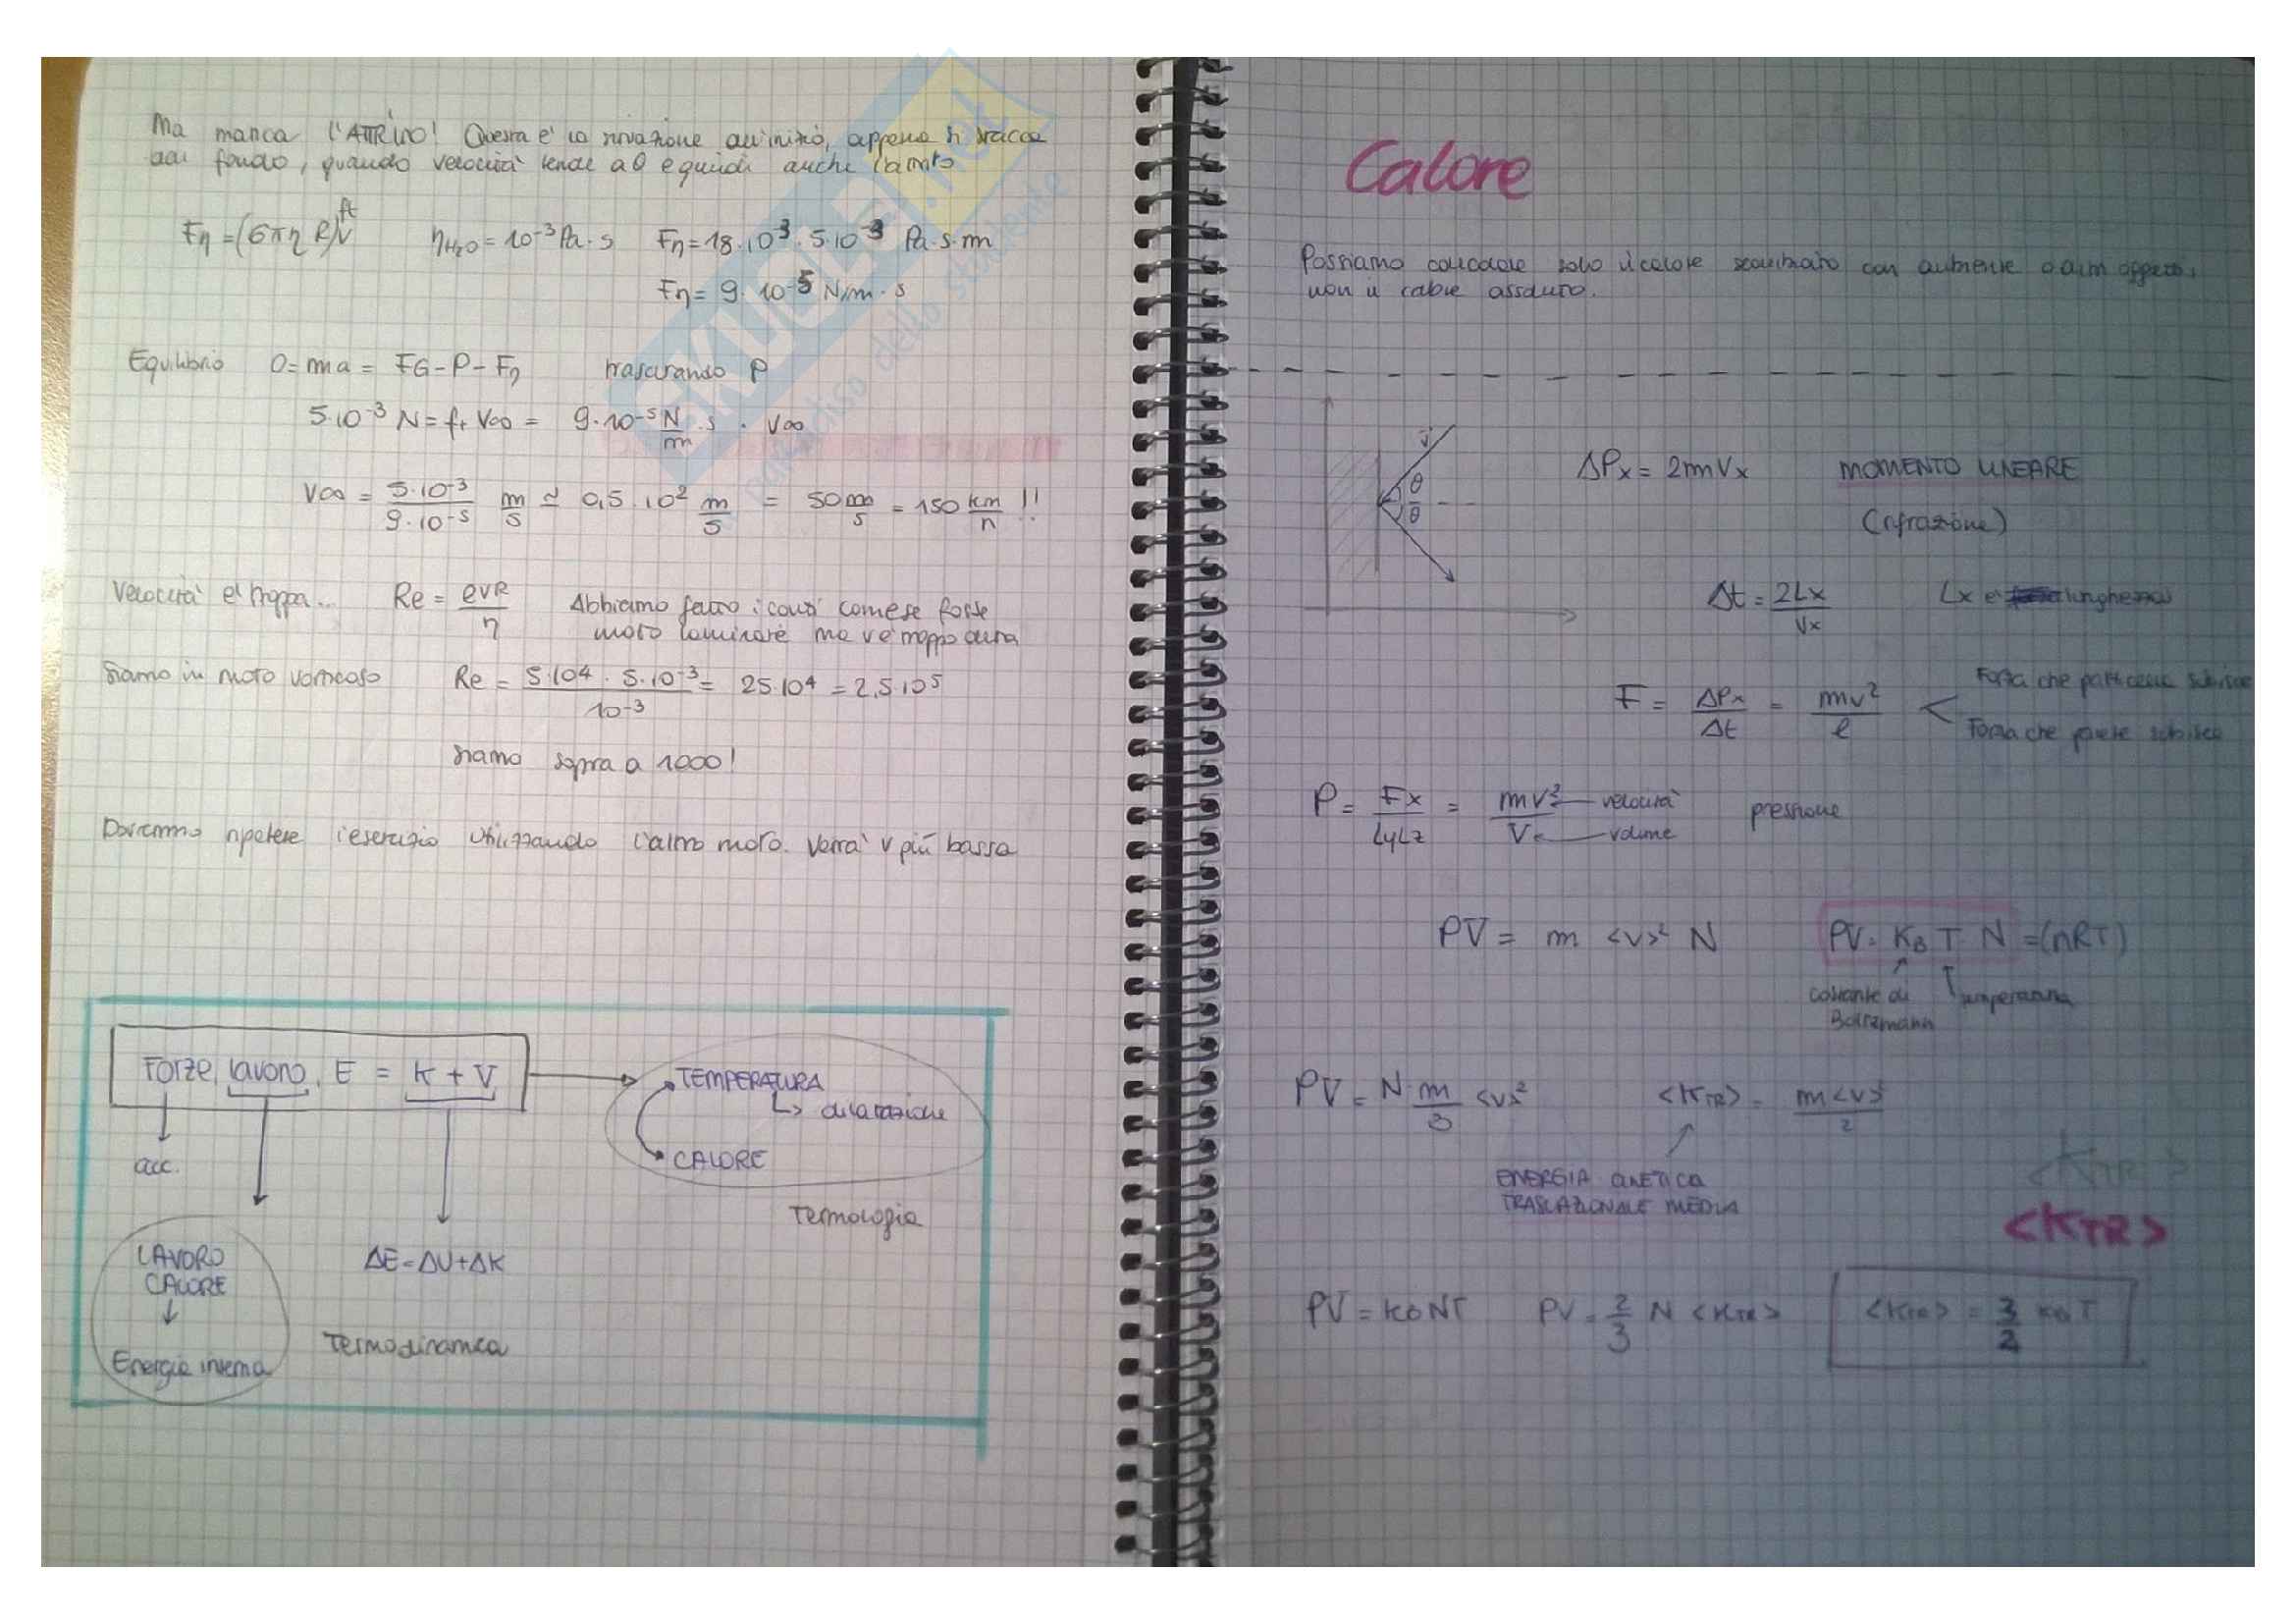 Ma manca l'ATTRITO! Questa e' la situazione all'inizio, appena si stacca
dal fondo, quando velocità tende a 0 e quindi anche l'attrito
Fη = (6πη R)v ft ηH₂O = 10⁻³ Pa·s Fη = 18·10⁻³·5·10⁻³ Pa·s·m
Fη = 9·10⁻⁵ N/m·s
Equilibrio 0 = ma = FG - P - Fη trascurando P
5·10⁻³ N = ft V∞ = 9·10⁻⁵ N/m ·s · V∞
V∞ = 5·10⁻³/9·10⁻⁵ m/s ≃ 0,5·10² m/s = 50 m/s = 150 km/h !!
Velocità e' troppa... Re = ρVR/η Abbiamo fatto i conti come se fosse
moto laminare ma v è troppo alta
Siamo in moto vorticoso Re = 5·10⁴·5·10⁻³/10⁻³ = 25·10⁴ = 2,5·10⁵
Siamo sopra a 1000!
Dovremmo ripetere l'esercizio utilizzando l'altro moto. Verrà v più bassa
Forze, lavoro, E = K + V
acc.
TEMPERATURA
↳ dilatazione
CALORE
Termologia
LAVORO
CALORE
↓
Energia interna
ΔE = ΔU + ΔK
Termodinamica
Calore
Possiamo calcolare solo il calore scambiato con ambiente o altri oggetti,
non il calore assoluto.
v
θ
θ
ΔPx = 2mVx MOMENTO LINEARE
(rifrazione)
Δt = 2Lx/Vx Lx e' lunghezza
F = ΔPx/Δt = mv²/l < Forza che particelle subisce
Forza che parete subisce
P = Fx/LyLz = mv²/V velocità volume pressione
PV = m <v>² N PV = KB T N = (nRT)
costante di Boltzmann Temperatura
PV = N m/3 <v>² <KTR> = m<v>²/2
ENERGIA CINETICA
TRASLAZIONALE MEDIA
<KTR>
<KTR>
PV = KBNT PV = 2/3 N <KTR> <KTR> = 3/2 KBT
SKUOLA.net
paradiso dello studente